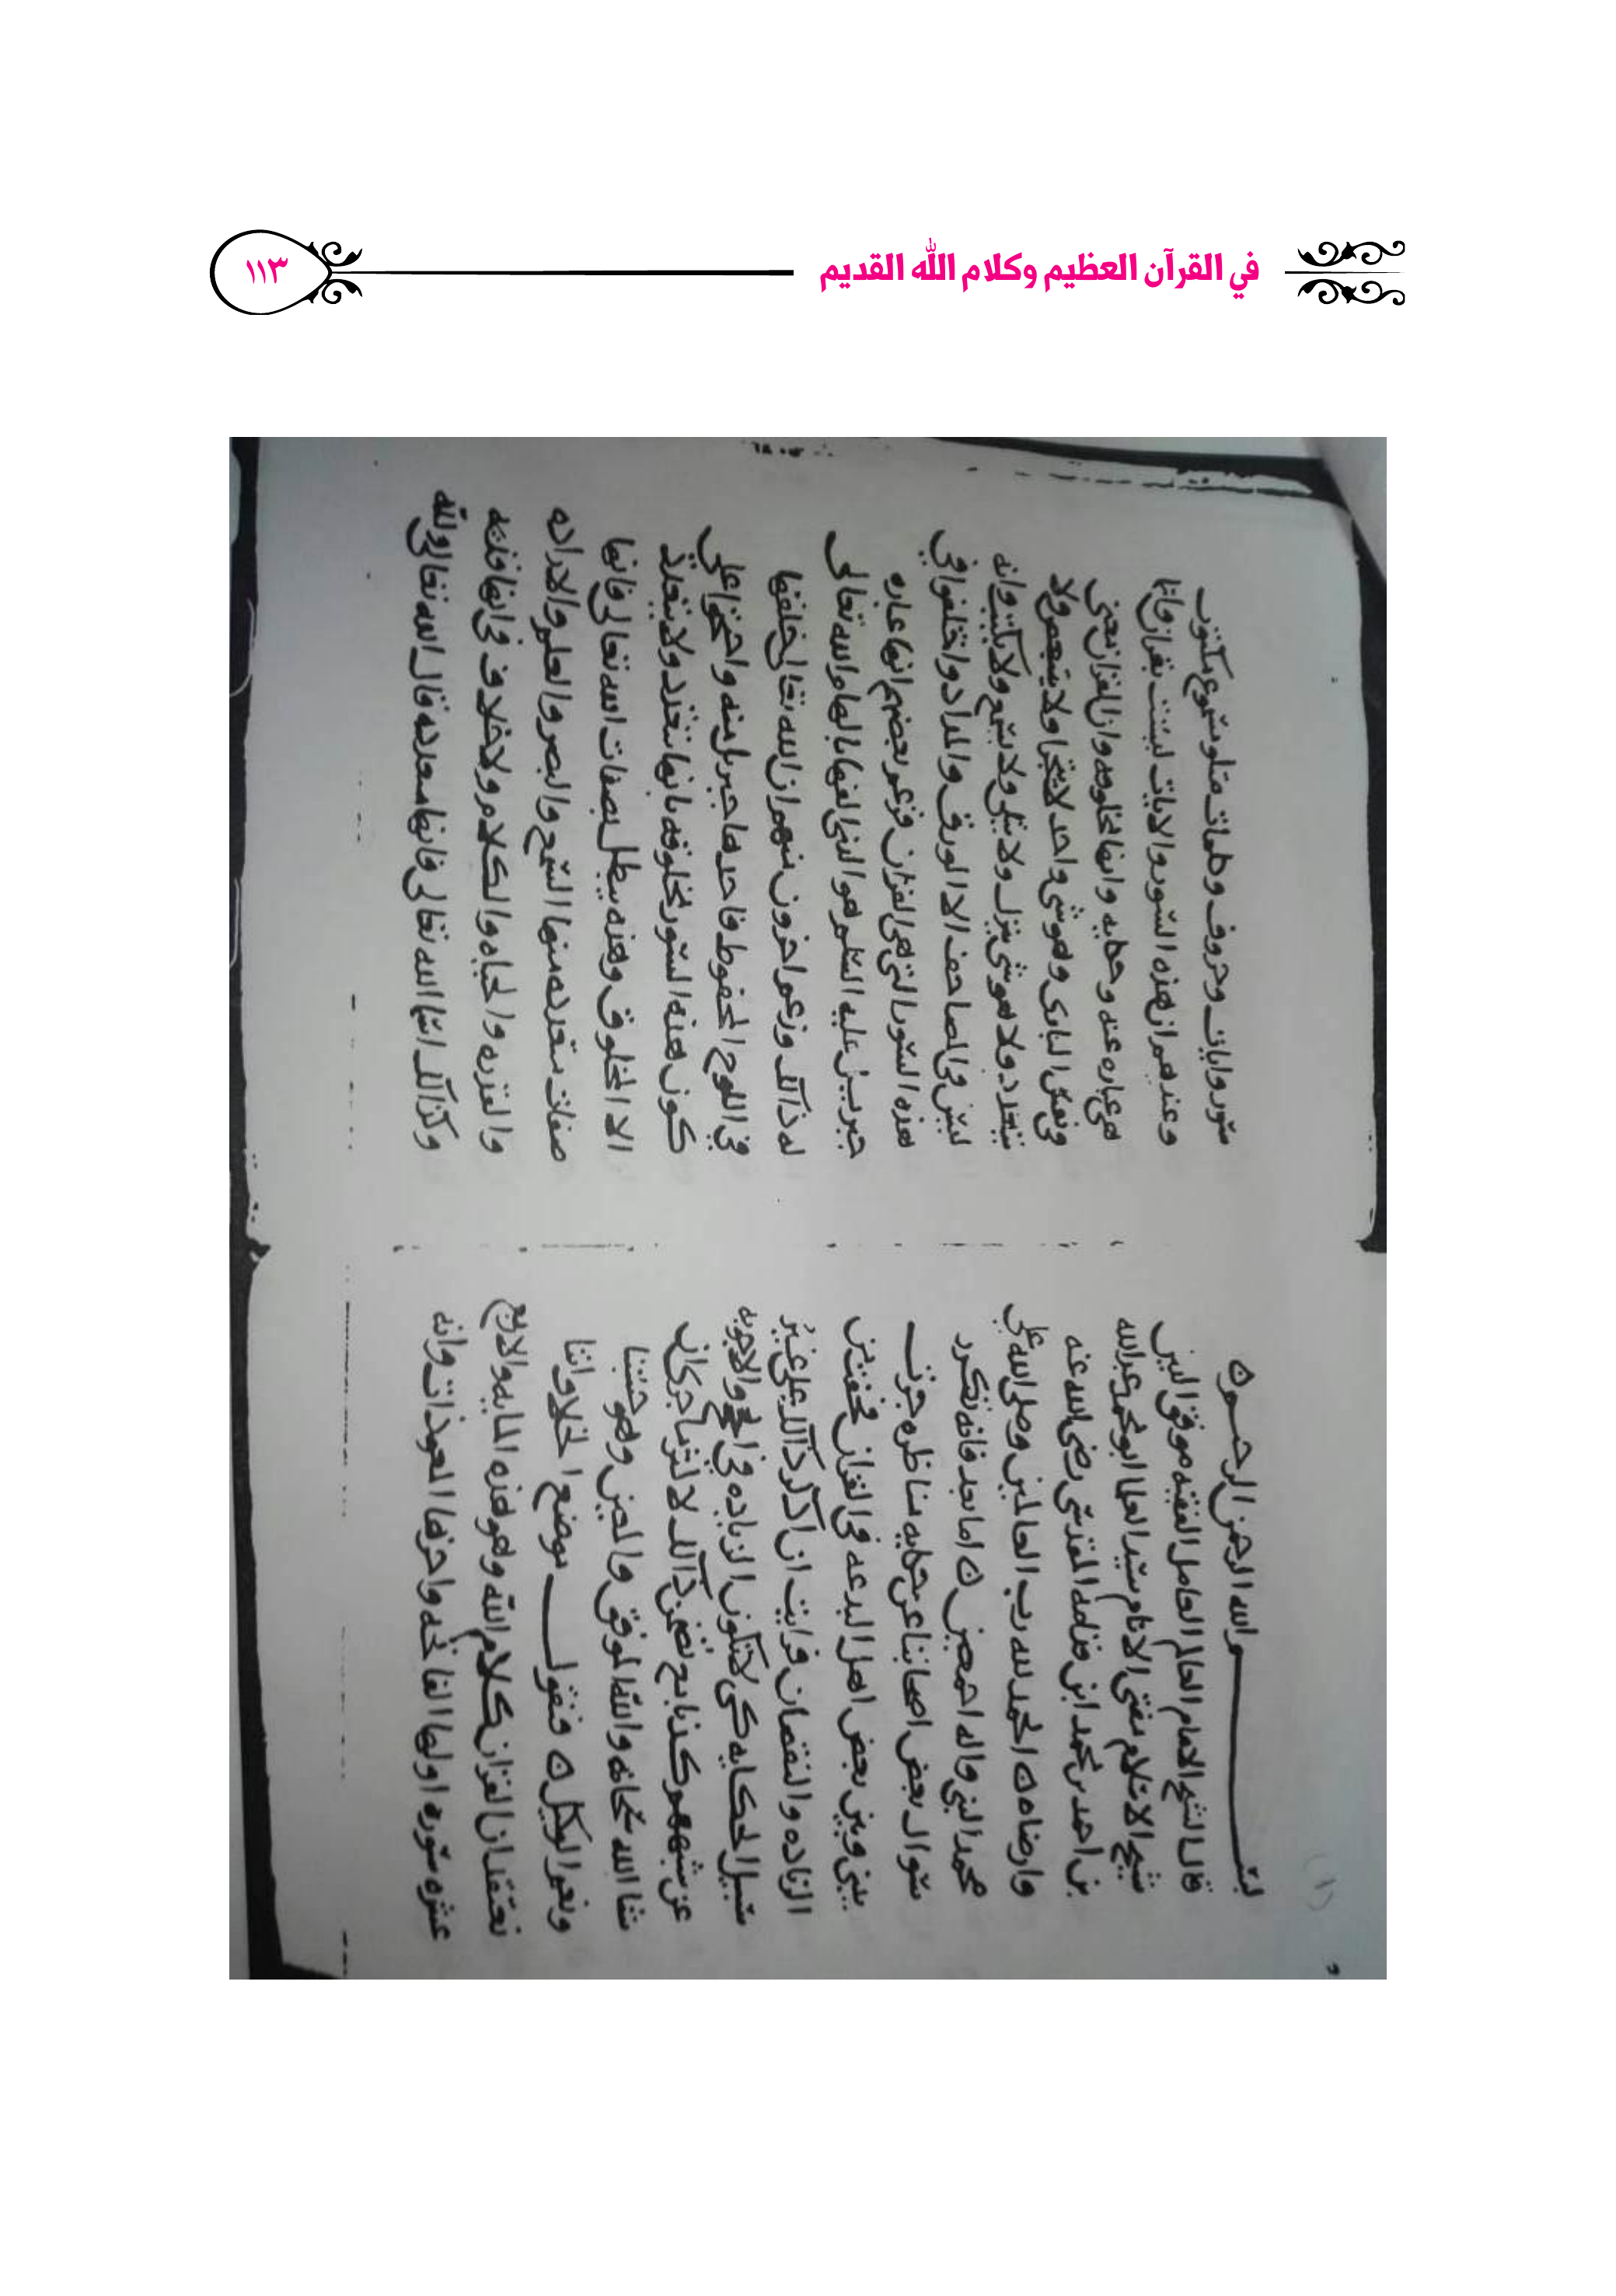 في القرآن العظيم وكلام الله القديم
١١٣
بســـم الله الرحمن الرحيم
قال الشيخ الامام العالم العامل الفقيه موفق الدين
شيخ الاسلام مفتي الانام سيد العلما ابو محمد عبد الله
بن احمد بن محمد ابن قدامه المقدسي رضي الله عنه
وارضاه الحمد لله رب العالمين وصلى الله على
محمد النبي واله اجمعين اما بعد فانه تكرر
سوال بعض اصحابنا عن حكايه مناظره جرت
بيني وبين بعض اهل البدعه في القران فخفت من
الزياده والنقصان فرايت ان اذكر ذلك على غير
سبيل الحكايه كي لا تكون الزياده في الحجج والاجوبه
عن شبههم كذبا مع تضمن ذلك لاكثر ما جرى ان
شا الله سبحانه والله الموفق والمعين وهو حسبنا
ونعم الوكيل فنقول موضع الخلاف اننا
نعتقد ان القران كلام الله وهو هذه المايه والاربع
عشره سوره اولها الفاتحه واخرها المعوذات وانه
سور وايات وحروف وكلمات متلو مسموع مكتوب
وعندهم ان هذه السور والايات ليست بقران وانما
هي عباره عنه وحكايه وانها مخلوقه وان القران معنى
في نفس الباري وهو شي واحد لا يتجزا ولا يتبعض ولا
يتعدد ولا هو شي ينزل ولا يتلى ولا يسمع ولا يكتب وانه
ليس في المصاحف الا الورق والمداد واختلفوا في
هذه السور التي هي القران فزعم بعضهم انها عباره
جبريل عليه السلم هو الذي الفها بالهام الله تعالى
له ذلك وزعم اخرون منهم ان الله تعالى خلقها
في اللوح المحفوظ فاخذها جبريل منه واحتجوا على
كون هذه السور مخلوقه بانها تتعدد ولا يتعدد
الا المخلوق وهذه يبطل بصفات الله تعالى فانها
صفات متعدده منها السمع والبصر والعلم والاراده
والقدره والحياه والكلام ولا خلاف في انها قديمه
وكذلك اسما الله تعالى فانها متعدده قال الله تعالى ولله